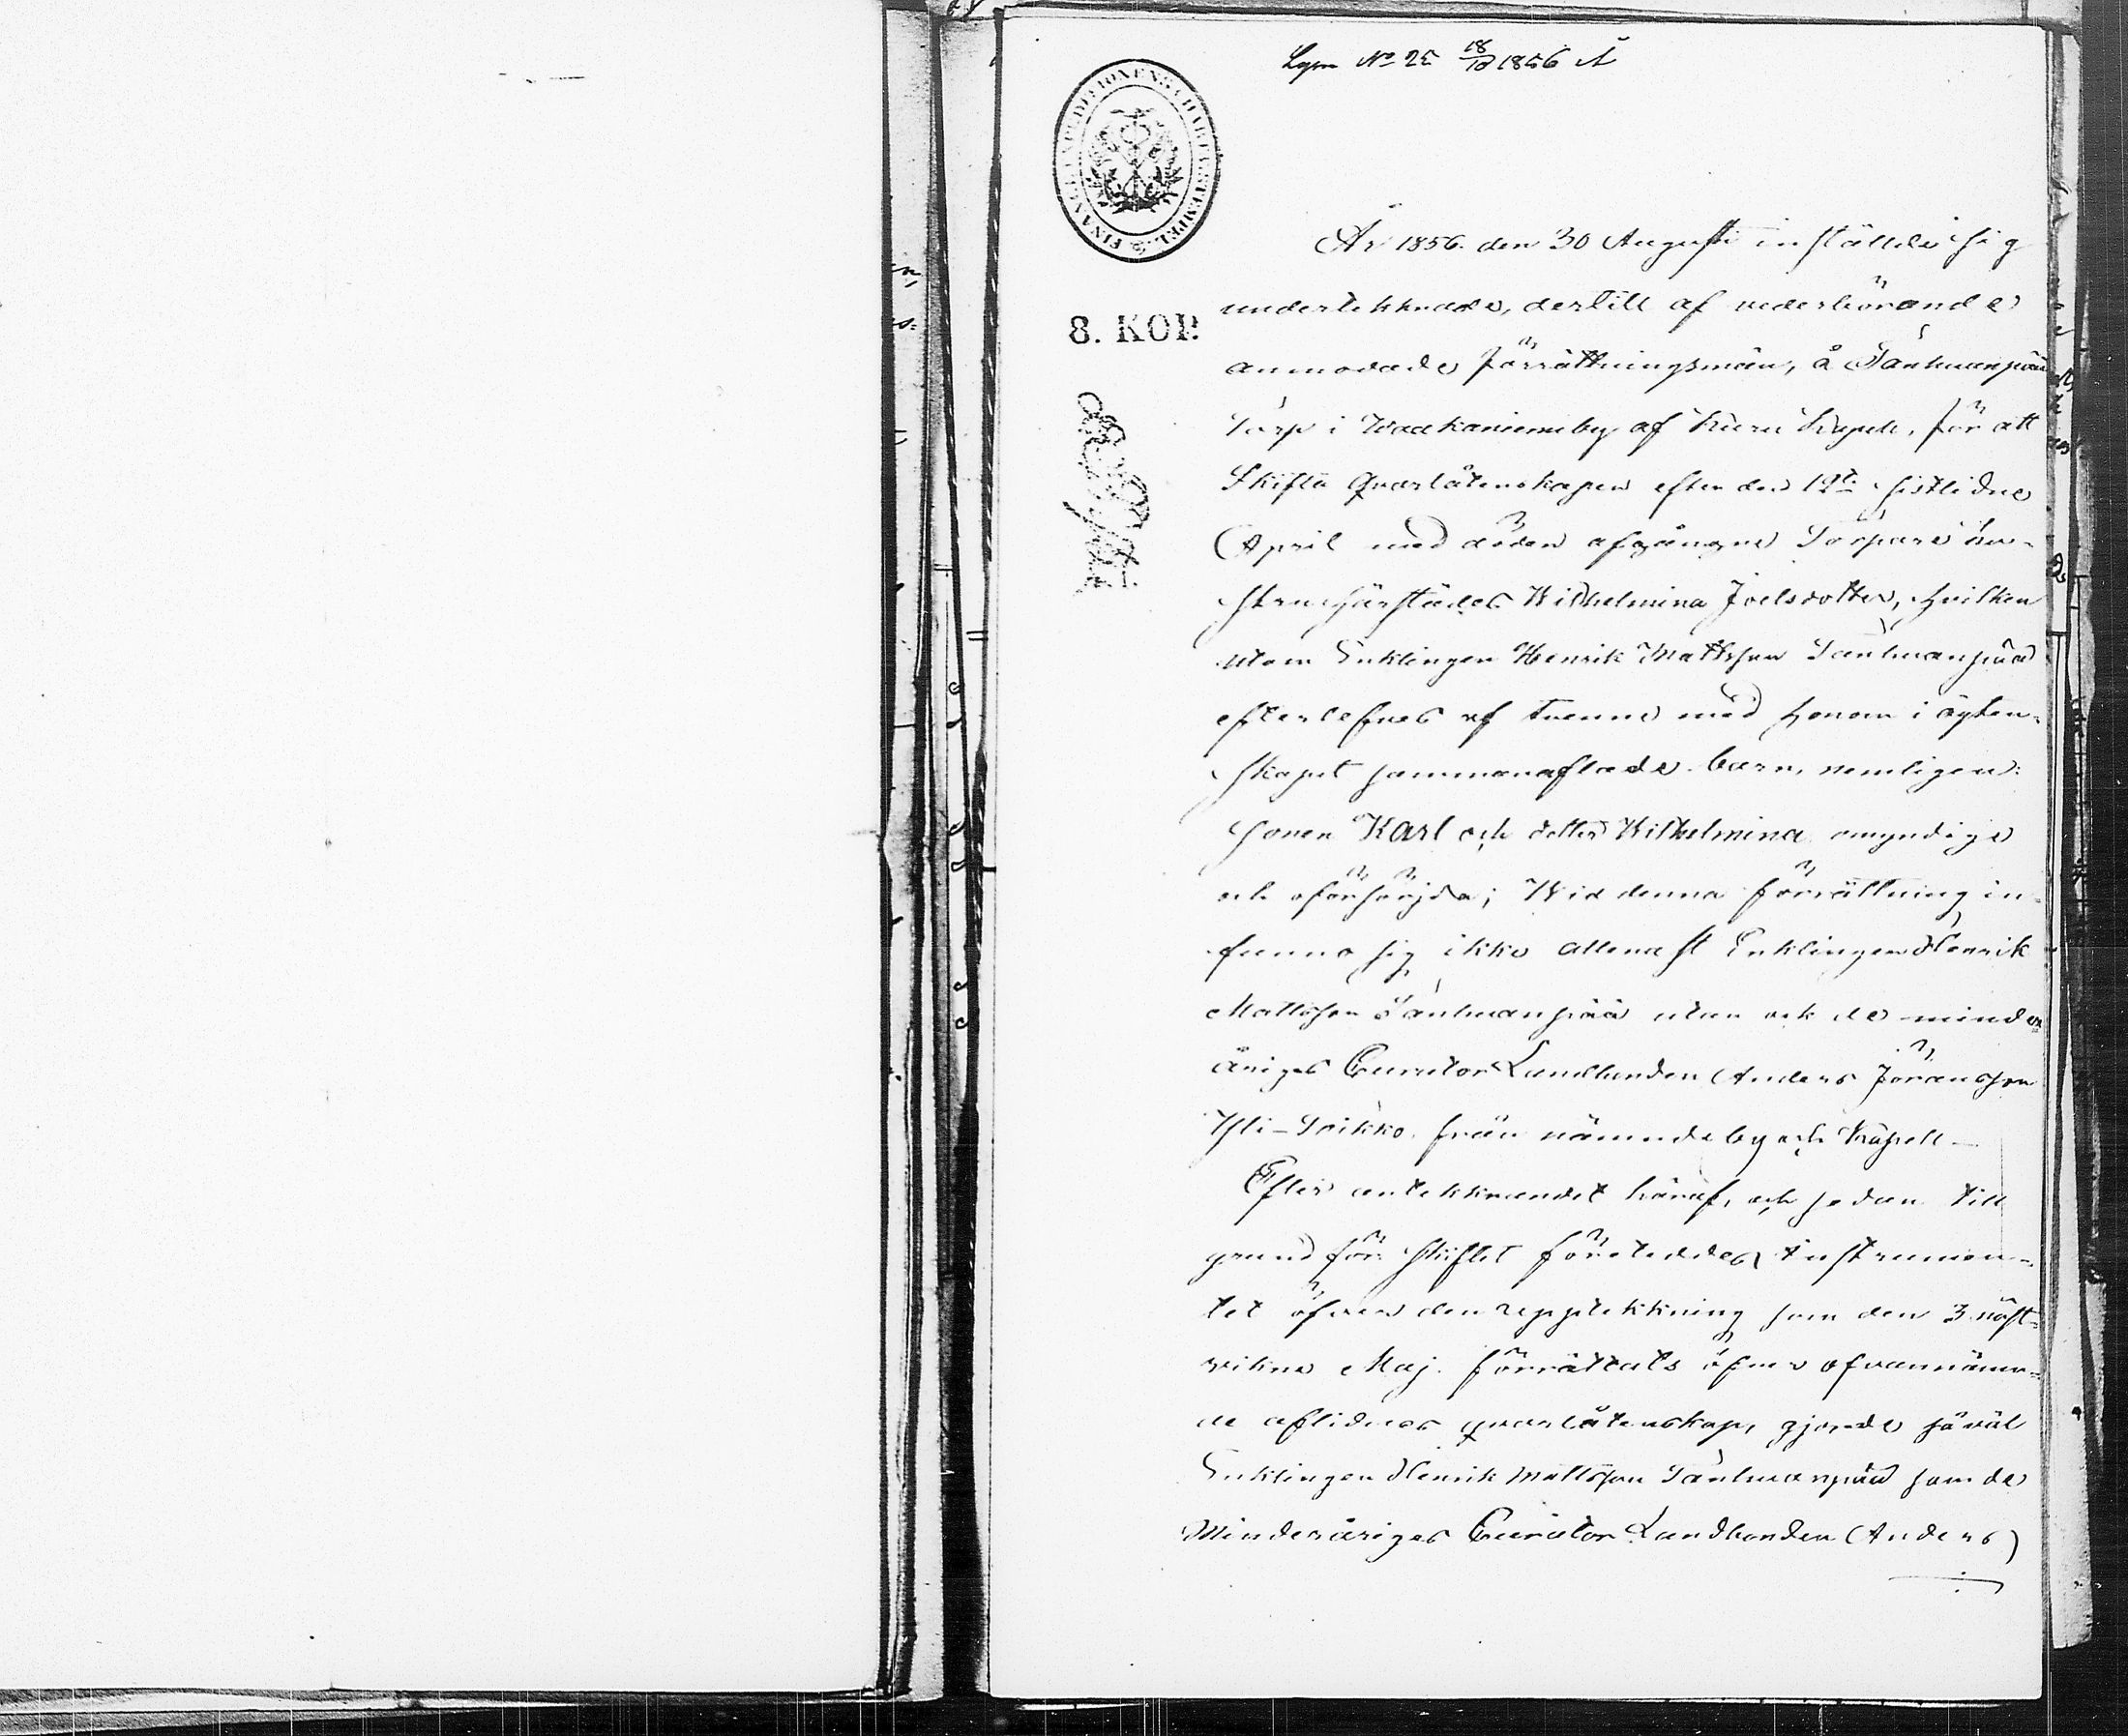 Lgm No 25 18/10 1856 A
FINANCE EXPEDITIONENS CHARTÆ STEMPEL
8. KOP.
År 1856 den 30 Augusti inställde sig
undertecknade, dertill af vederbörande
anmodade förrättningsmän, å Säntmanpää
Torp i Waakaniemi by af Kuru Kapell, för att
Skifta Qvarlåtenskapen efter den 19de sistlidne
April med döden afgångne Torpare hu-
strun härstädes Wilhelmina Joelsdotter, hvilken
utom Enklingen Henrik Mattsson Säntmanpää
efterlefves af tvenne med honom i ägten-
skapet sammanaflade barn, nemligen:
Sonen Karl och dotter Wilhelmina omyndige
och oförsörjda; Wid denna förrättning in-
funno sig ikke allenast Enklingen Henrik
Mattsson Säntmanpää utan ock de minder
åriges Curator Landbonden Anders Göransson
Yli-Soikko från nämnde by och Kapell —
Efter antekknandet häraf, och sedan till
grund för skiftet företeddes instrumen-
tet öfver den uppteckning som den 3 näst-
vikne Maj förrättats öfver ofvannämn-
de aflidnes qvarlåtenskap, gjorde såväl
Enklingen Henrik Mattsson Säntmanpää som de
Minderåriges Curator Landbonden Anders